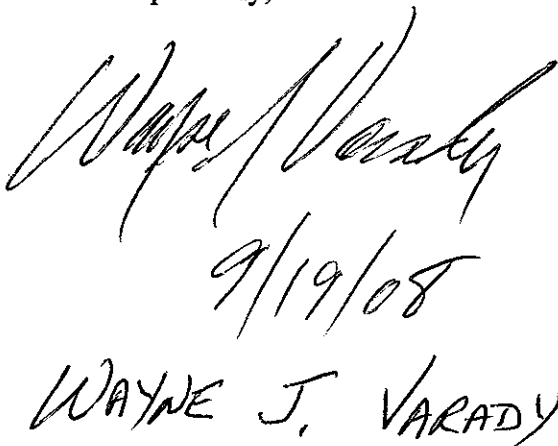 Wayne J Varady
9/19/08
WAYNE J. VARADY